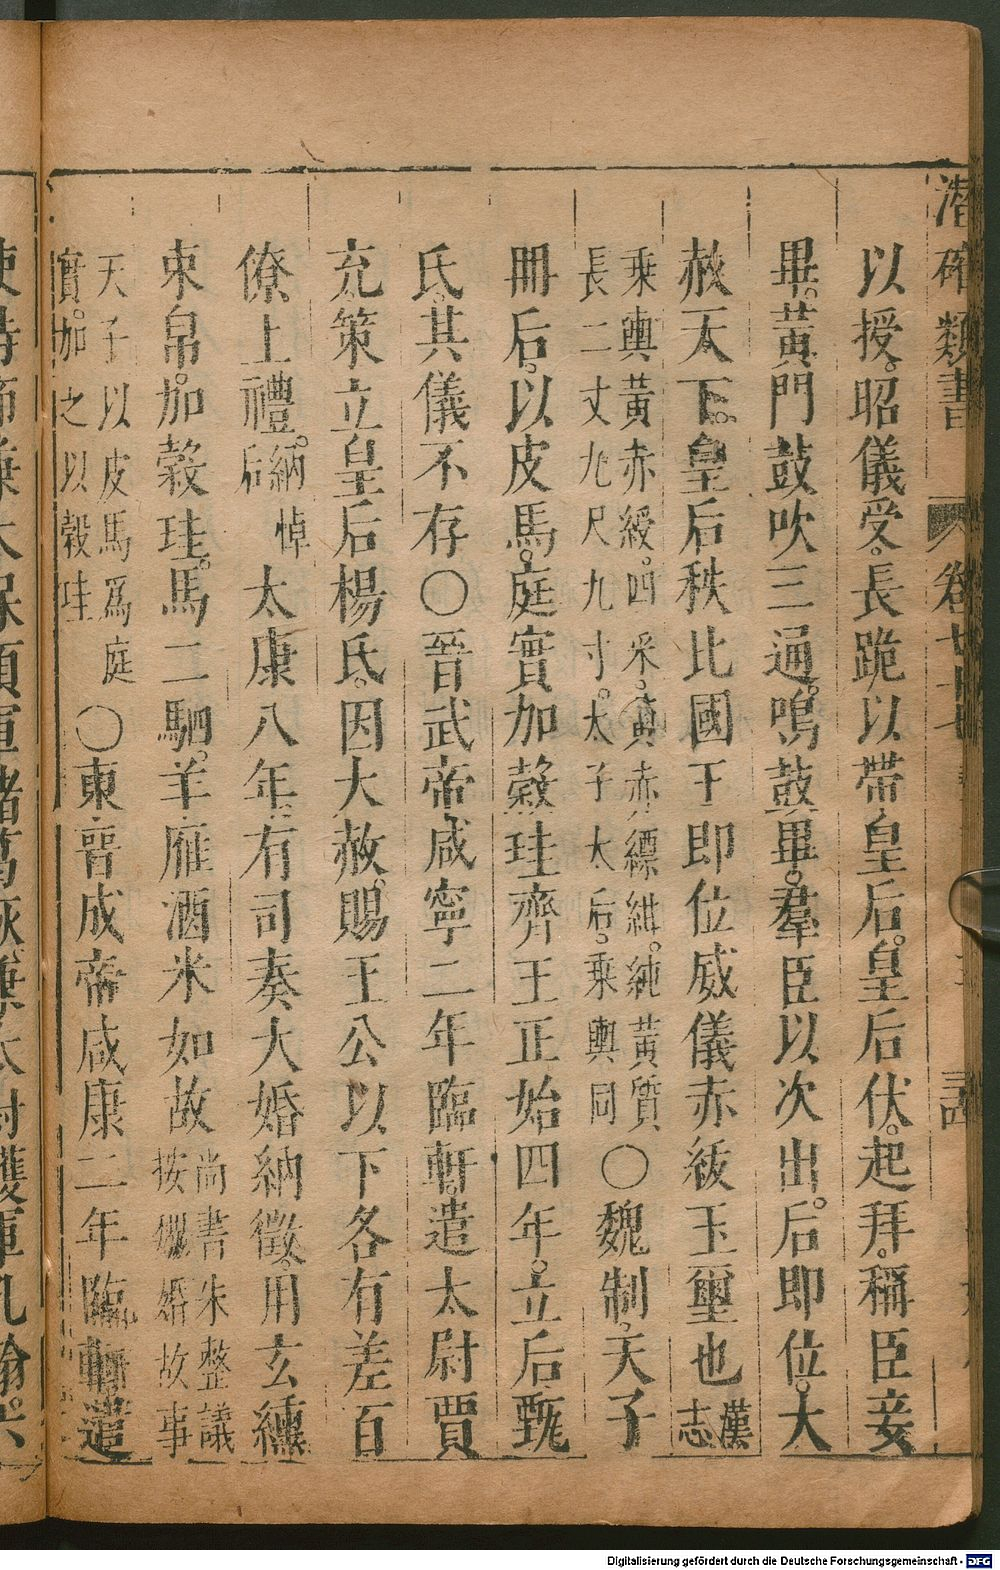 潛確類書 卷七十七
以授。昭儀受。長跪以帶皇后。皇后伏。起拜。稱臣妾
畢。黃門鼓吹三通。鳴鼓畢。羣臣以次出。后即位。大
赦天下。皇后秩比國王即位威儀赤紱玉璽也 漢志
乘輿黃赤綬。四采。黃赤縹紺。純黃質
長二丈九尺九寸。太子太后。乘輿同
○魏制。天子
冊后。以皮馬。庭實加穀珪齊王正始四年。立后甄
氏。其儀不存○晉武帝咸寧二年臨軒。遣太尉賈
充。策立皇后楊氏。因大赦。賜王公以下各有差百
僚上禮。納悼后 太康八年。有司奏大婚納徵。用玄纁
束帛。加穀珪。馬二駟。羊雁酒米如故
尚書朱整議
按婚故事
天子以皮馬爲庭
實。加之以穀珪
○東晉成帝咸康二年臨軒遣